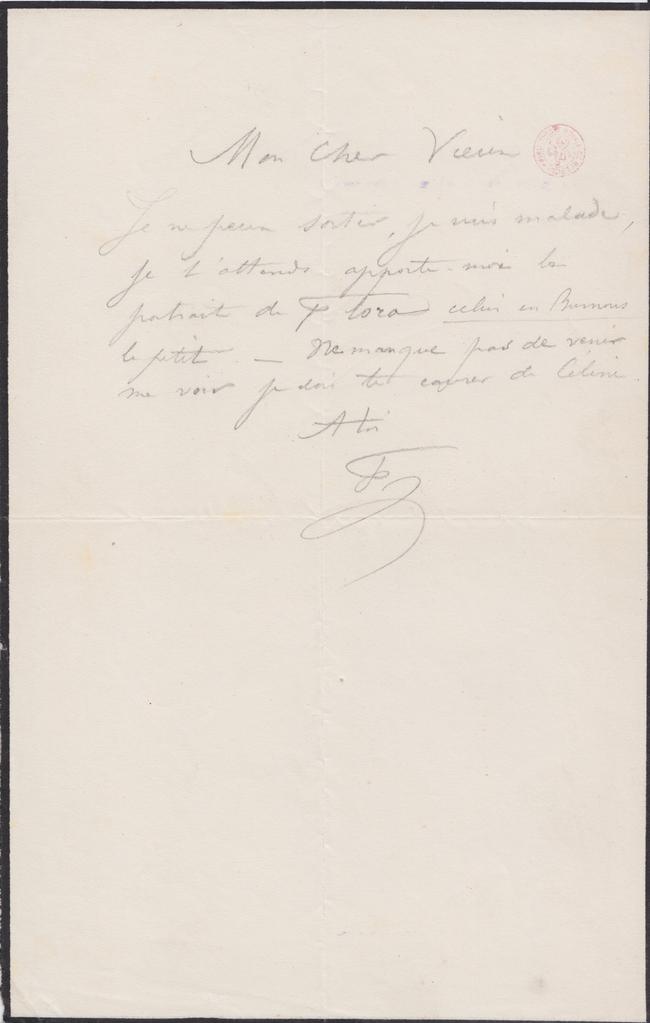 Mon Cher Vieux
Je ne peux sortir, je suis malade,
je t'attends apporte-moi le
portrait de Flora celui en Burnous
le petit — Ne manque pas de venir
me voir je dois te causer de Céline
A toi